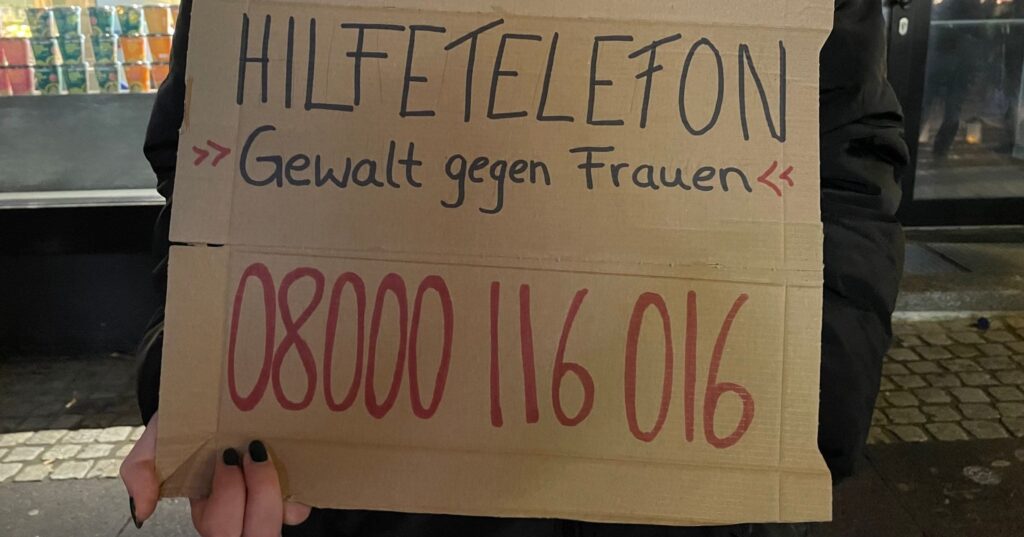 HILFETELEFON
>> Gewalt gegen Frauen <<
08000 116 016